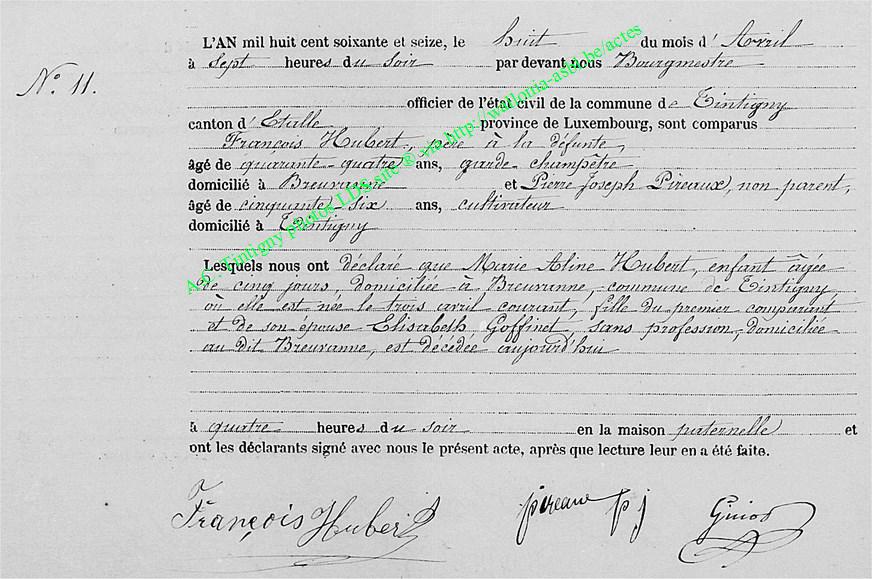 L'AN mil huit cent soixante et seize, le huit du mois d'Avril
à sept heures du soir par devant nous Bourgmestre
N° 11.
officier de l'état civil de la commune de Tintigny
canton d'Etalle province de Luxembourg, sont comparus
François Hubert, père à la défunte,
âgé de quarante-quatre ans, garde-champêtre
domicilié à Breuvanne et Pierre Joseph Pireaux, non parent,
âgé de cinquante-six ans, cultivateur
domicilié à Tintigny
Lesquels nous ont déclaré que Marie Aline Hubert, enfant âgée
de cinq jours, domiciliée à Breuvanne, commune de Tintigny
où elle est née le trois avril courant, fille du premier comparant
et de son épouse Elisabeth Goffinet, sans profession, domiciliée
au dit Breuvanne, est décédée aujourd'hui
à quatre heures du soir en la maison paternelle et
ont les déclarants signé avec nous le présent acte, après que lecture leur en a été faite.
François Hubert pireaux pj
A.C. Tintigny photos LDS site ® via http://wallonia-asbl.be/actes